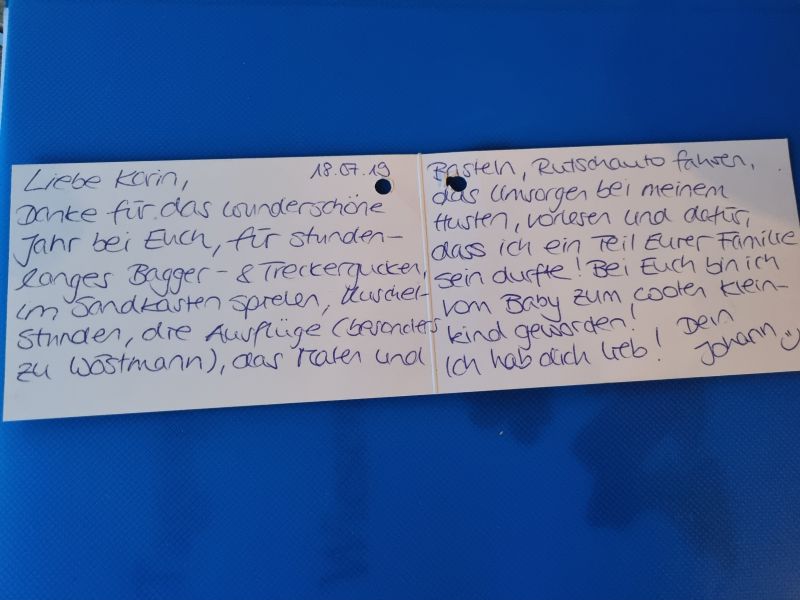 18.07.19
Liebe Karin,
Danke für das wunderschöne
Jahr bei Euch, für stunden-
langes Bagger- & Treckergucken,
im Sandkasten spielen, Kuschel-
stunden, die Ausflüge (besonders
zu Wöstmann), das Malen und
Basteln, Rutschauto fahren,
das Umsorgen bei meinem
Husten, vorlesen und dafür,
dass ich ein Teil Eurer Familie
sein durfte! Bei Euch bin ich
vom Baby zum coolen Klein-
kind geworden!
Ich hab dich lieb! Dein
Johann